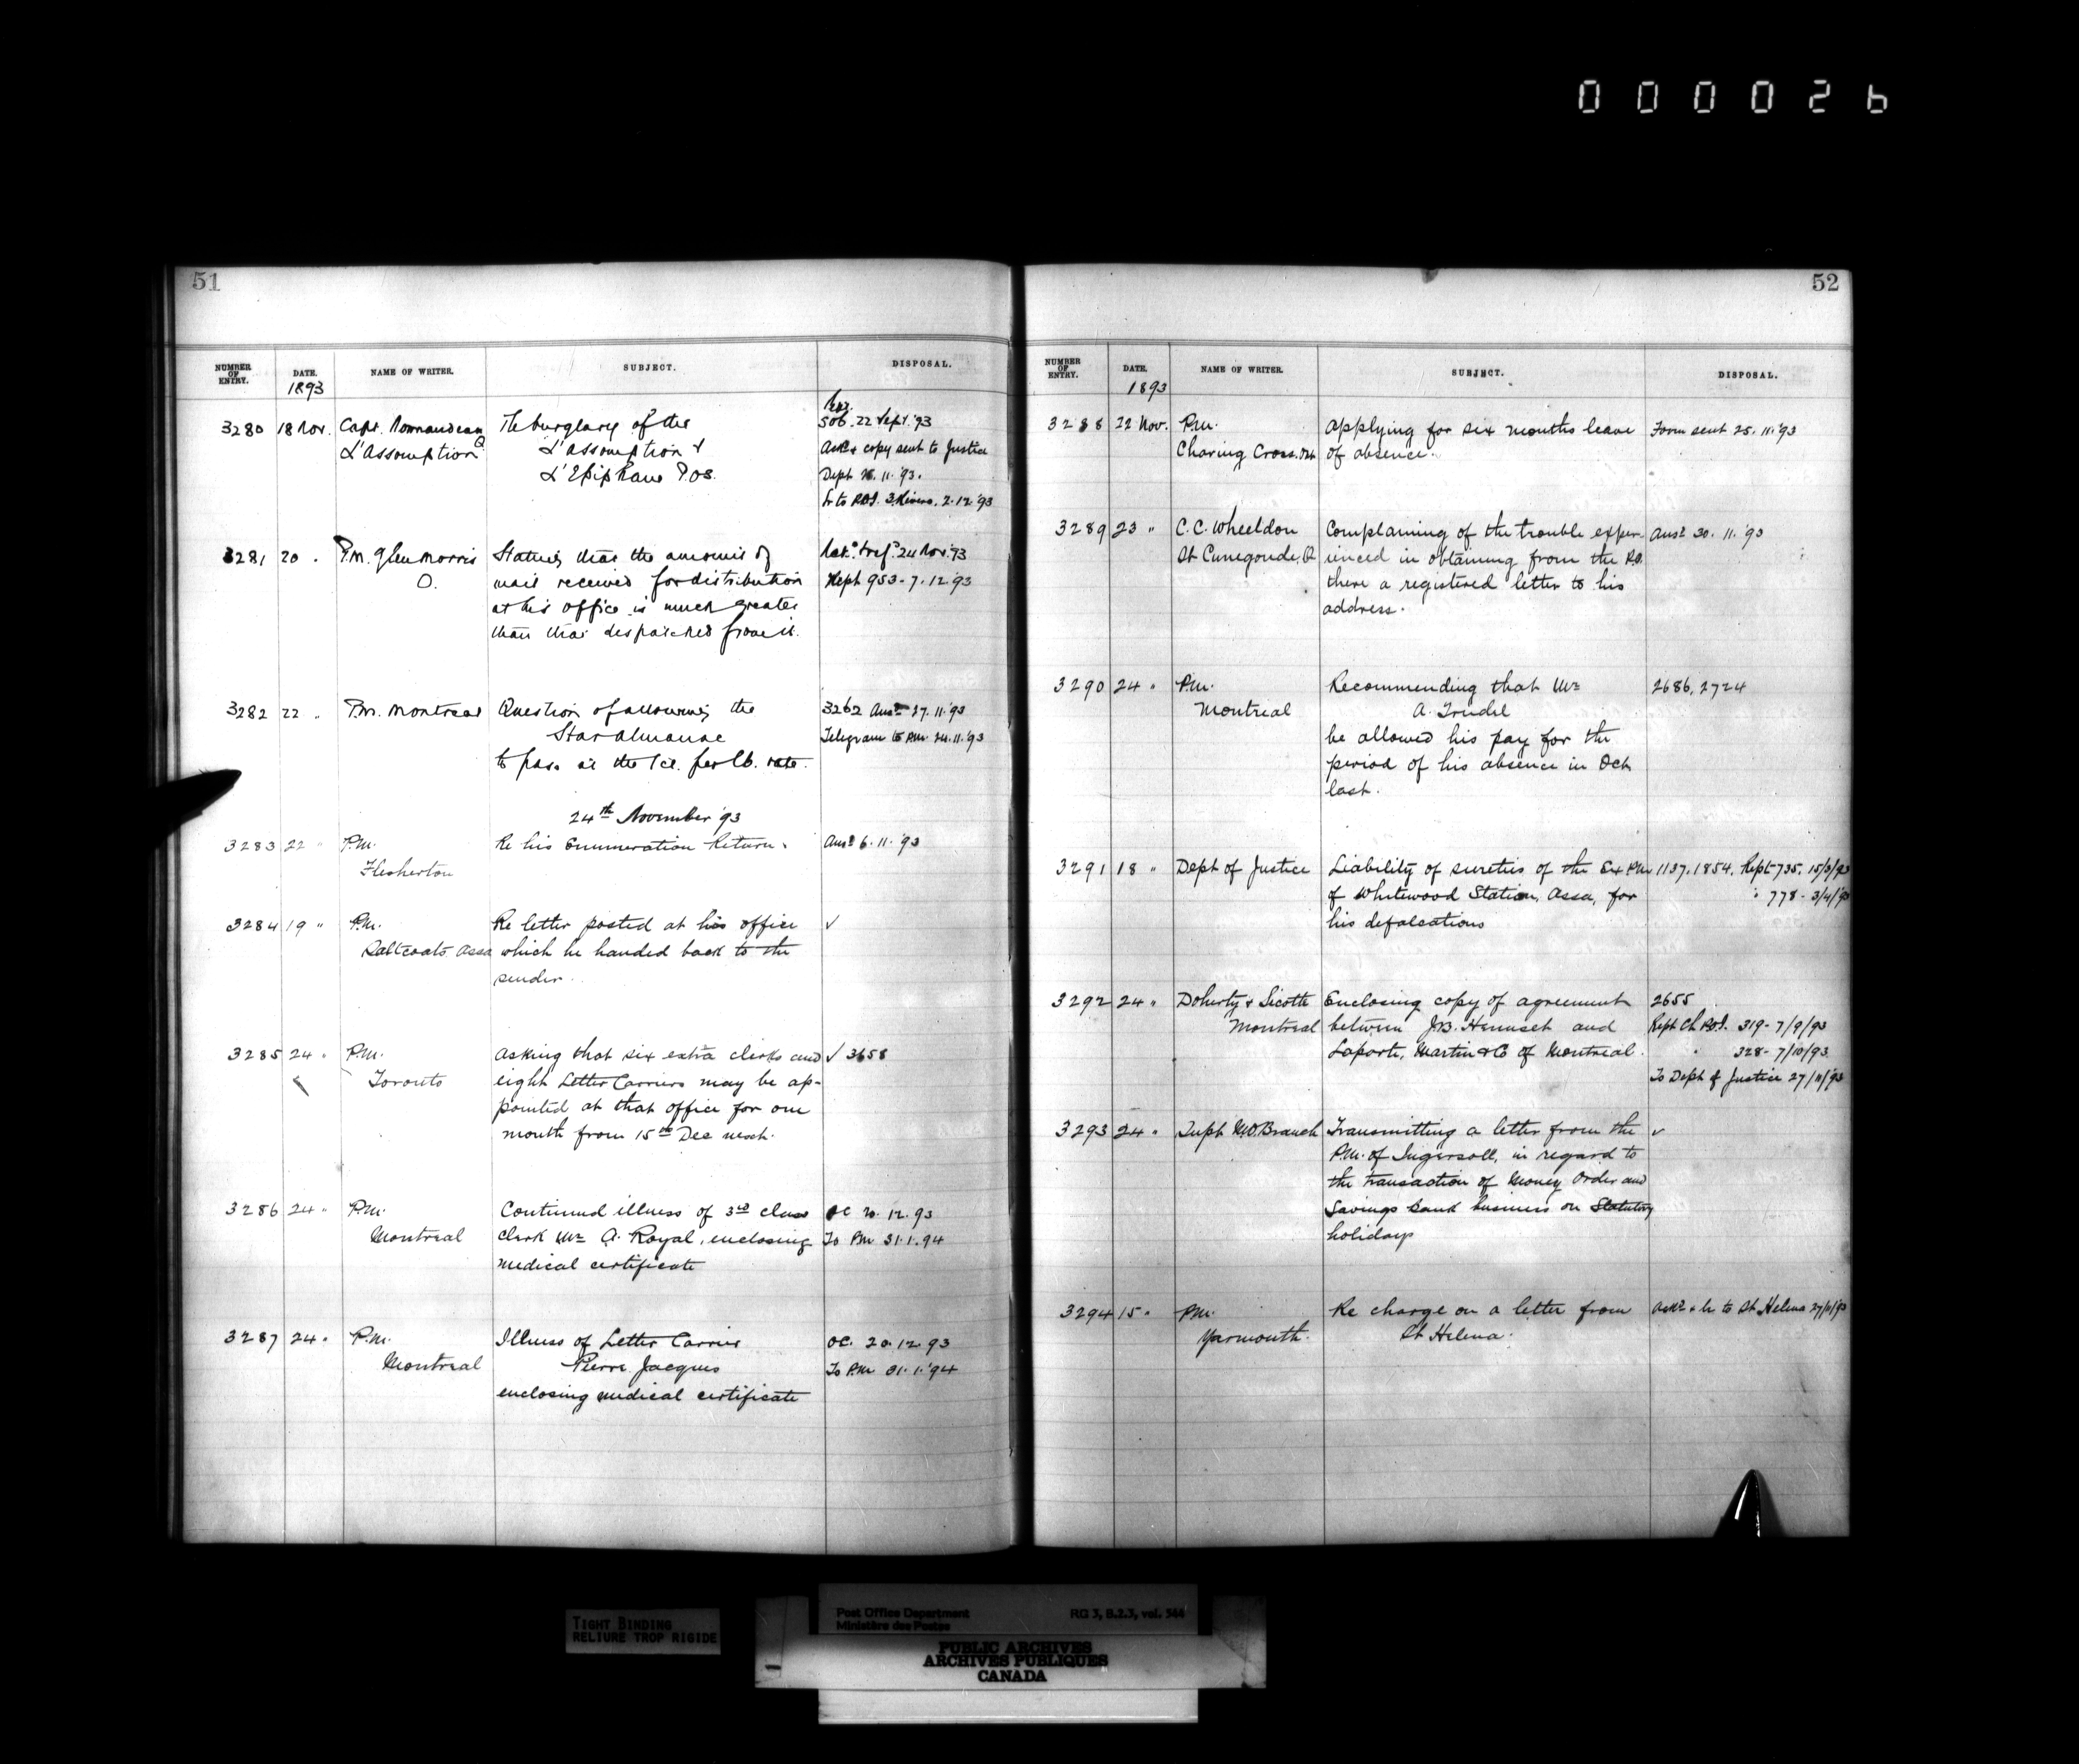 000026
51
NUMBER OF ENTRY. DATE. NAME OF WRITER. SUBJECT. DISPOSAL.
1893
3280 18 Nov. Capt. The burglary of the 506. 22 Sept. '93
L'Assomption Q L'Assomption & Ack & copy sent to Justice
L'Epiphanie P.Os. Dept 11. '93.
to P.O.I. 3 Rivers. 2.12.'93
3281 20 " P.M. Glenmorris Stating that the amount of 24 Nov. 93
O. mail received for distribution Rept 953 - 7.12.93
at his office is much greater
than that despatched from it.
3282 22 " P.M. Montreal Question of allowing the 3262 Ansd 27.11.'93
Star Almanac Telegram to P.M. 24.11.'93
to pass at the 1ct. per lb. rate.
24th November '93
3283 22 " P.M. Re his Enumeration Return. Ansd 6.11.'93
Flesherton
3284 19 " P.M. Re letter posted at his office ✓
Saltcoats Assa which he handed back to the
sender.
3285 24 " P.M. Asking that six extra clerks and ✓ 3658
Toronto eight Letter Carriers may be ap-
pointed at that office for one
month from 15th Dec next.
3286 24 " P.M. Continued illness of 3rd class OC 20.12.93
Montreal clerk Mr A. Royal, enclosing To P.M. 31.1.94
medical certificate
3287 24 " P.M. Illness of Letter Carrier OC. 20.12.93
Montreal Pierre Jacques To P.M. 31.1.'94
enclosing medical certificate
52
NUMBER OF ENTRY. DATE. NAME OF WRITER. SUBJECT. DISPOSAL.
1893
3288 22 Nov. P.M. Applying for six months leave Form sent 25.11.'93
Charing Cross. Ont of absence.
3289 23 " C.C. Wheeldon Complaining of the trouble exper- Ansd 30.11.'93
St Cunegonde. Q ienced in obtaining from the P.O.
there a registered letter to his
address.
3290 24 " P.M. Recommending that Mr 2686, 2724
Montreal A. Trudel
be allowed his pay for the
period of his absence in Oct.
last.
3291 18 " Dept of Justice Liability of sureties of the Ex P.M. 1137, 1854, Rept 735, 15/3/93
of Whitewood Station, Assa, for " 778 - 3/4/93
his defalcations
3292 24 " Doherty & Sicotte Enclosing copy of agreement 2655
Montreal between J.B. Henuset and Rept Ch P.O.I. 319 - 7/9/93
Laporte, Martin & Co of Montreal. " 328 - 7/10/93
To Dept of Justice 27/11/93
3293 24 " Supt M.O. Branch Transmitting a letter from the ✓
P.M. of Ingersoll, in regard to
the transaction of Money Order and
Savings Bank business on Statutory
holidays
3294 15 " P.M. Re charge on a letter from Ackd & to St. Helena 27/11/93
Yarmouth. St Helena.
TIGHT BINDING
RELIURE TROP RIGIDE
Post Office Department RG 3, B.2.3, vol. 566
Ministère des Postes
PUBLIC ARCHIVES
ARCHIVES PUBLIQUES
CANADA